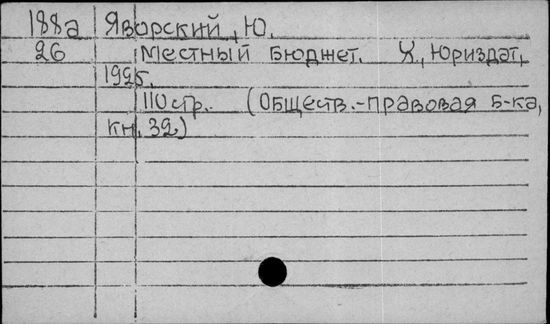 188а Яворский, Ю.
26 Местный бюджет. Х., Юриздат,
1925г.
110 стр. (Обществ.-правовая б-ка,
кн. 32)